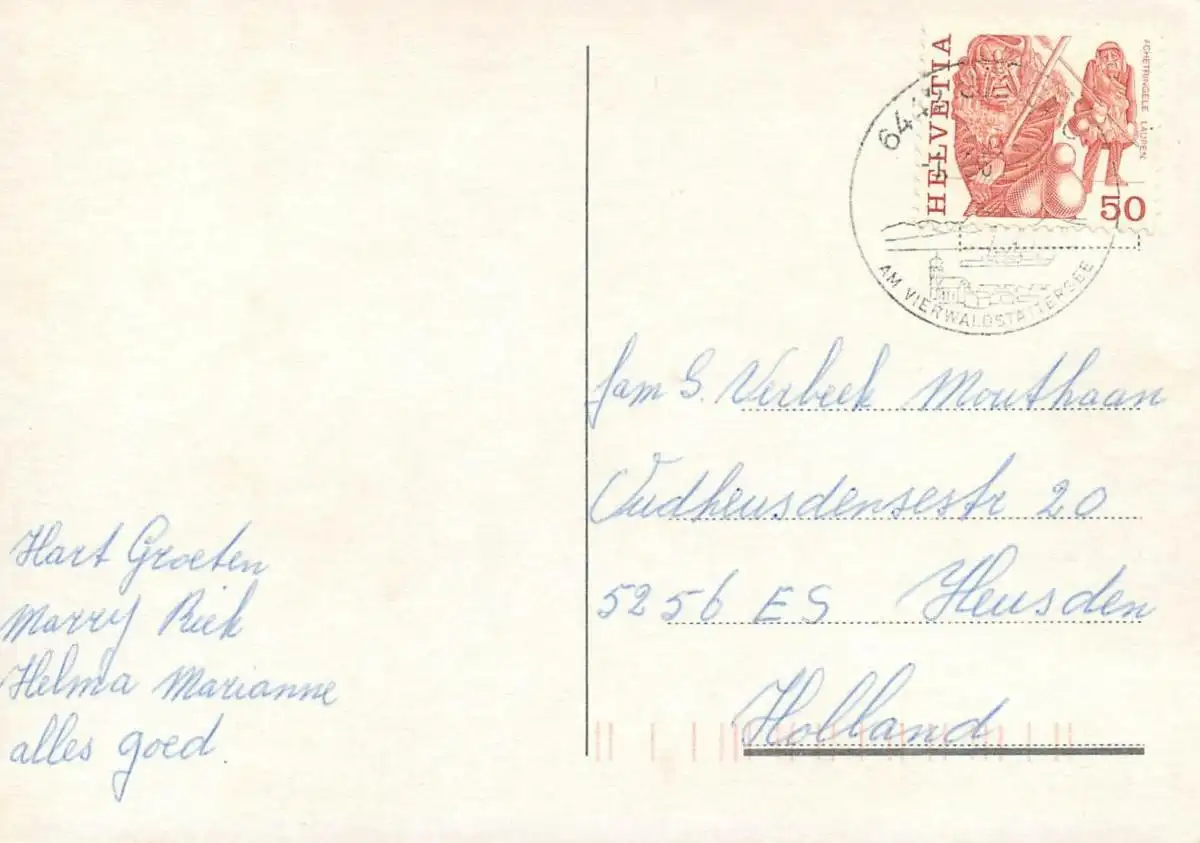 HELVETIA
ACHETRINGELE LAUPEN
50
AM VIERWALDSTÄTTERSEE
fam G. Verbeek Mouthaan
Oudheusdensestr 20
5256 ES Heusden
Holland
Hart Groeten
Marry Riek
Helma Marianne
alles goed